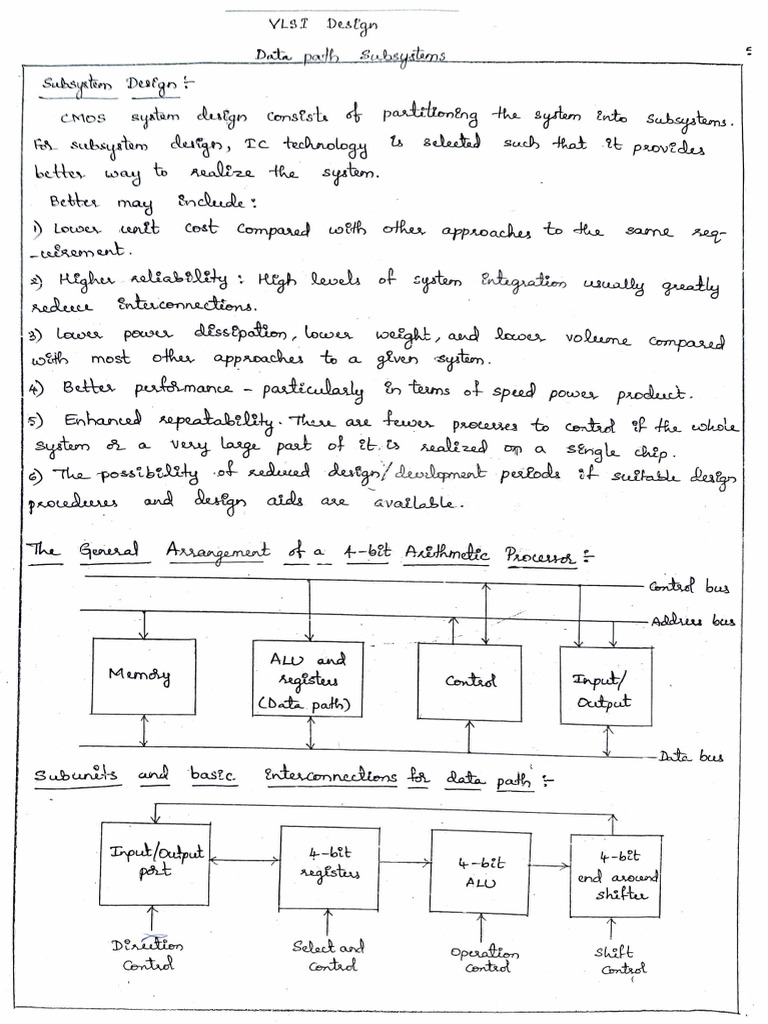 VLSI Design
Data path Subsystems
Subsystem Design :-
CMOS system design consists of partitioning the system into subsystems.
For subsystem design, IC technology is selected such that it provides
better way to realize the system.
Better may include :
1) Lower unit cost compared with other approaches to the same req-
-uirement.
2) Higher reliability : High levels of system integration usually greatly
reduce interconnections.
3) Lower power dissipation, lower weight, and lower volume compared
with most other approaches to a given system.
4) Better performance - particularly in terms of speed power product.
5) Enhanced repeatability. There are fewer processes to control if the whole
system or a very large part of it is realized on a single chip.
6) The possibility of reduced design/development periods if suitable design
procedures and design aids are available.
The General Arrangement of a 4-bit Arithmetic Processor :-
Control bus
Address bus
Memory
ALU and
registers
(Data path)
Control
Input/
Output
Data bus
Subunits and basic interconnections for data path :-
Input/Output
port
4-bit
registers
4-bit
ALU
4-bit
end around
shifter
Direction
Control
Select and
Control
Operation
Control
Shift
Control